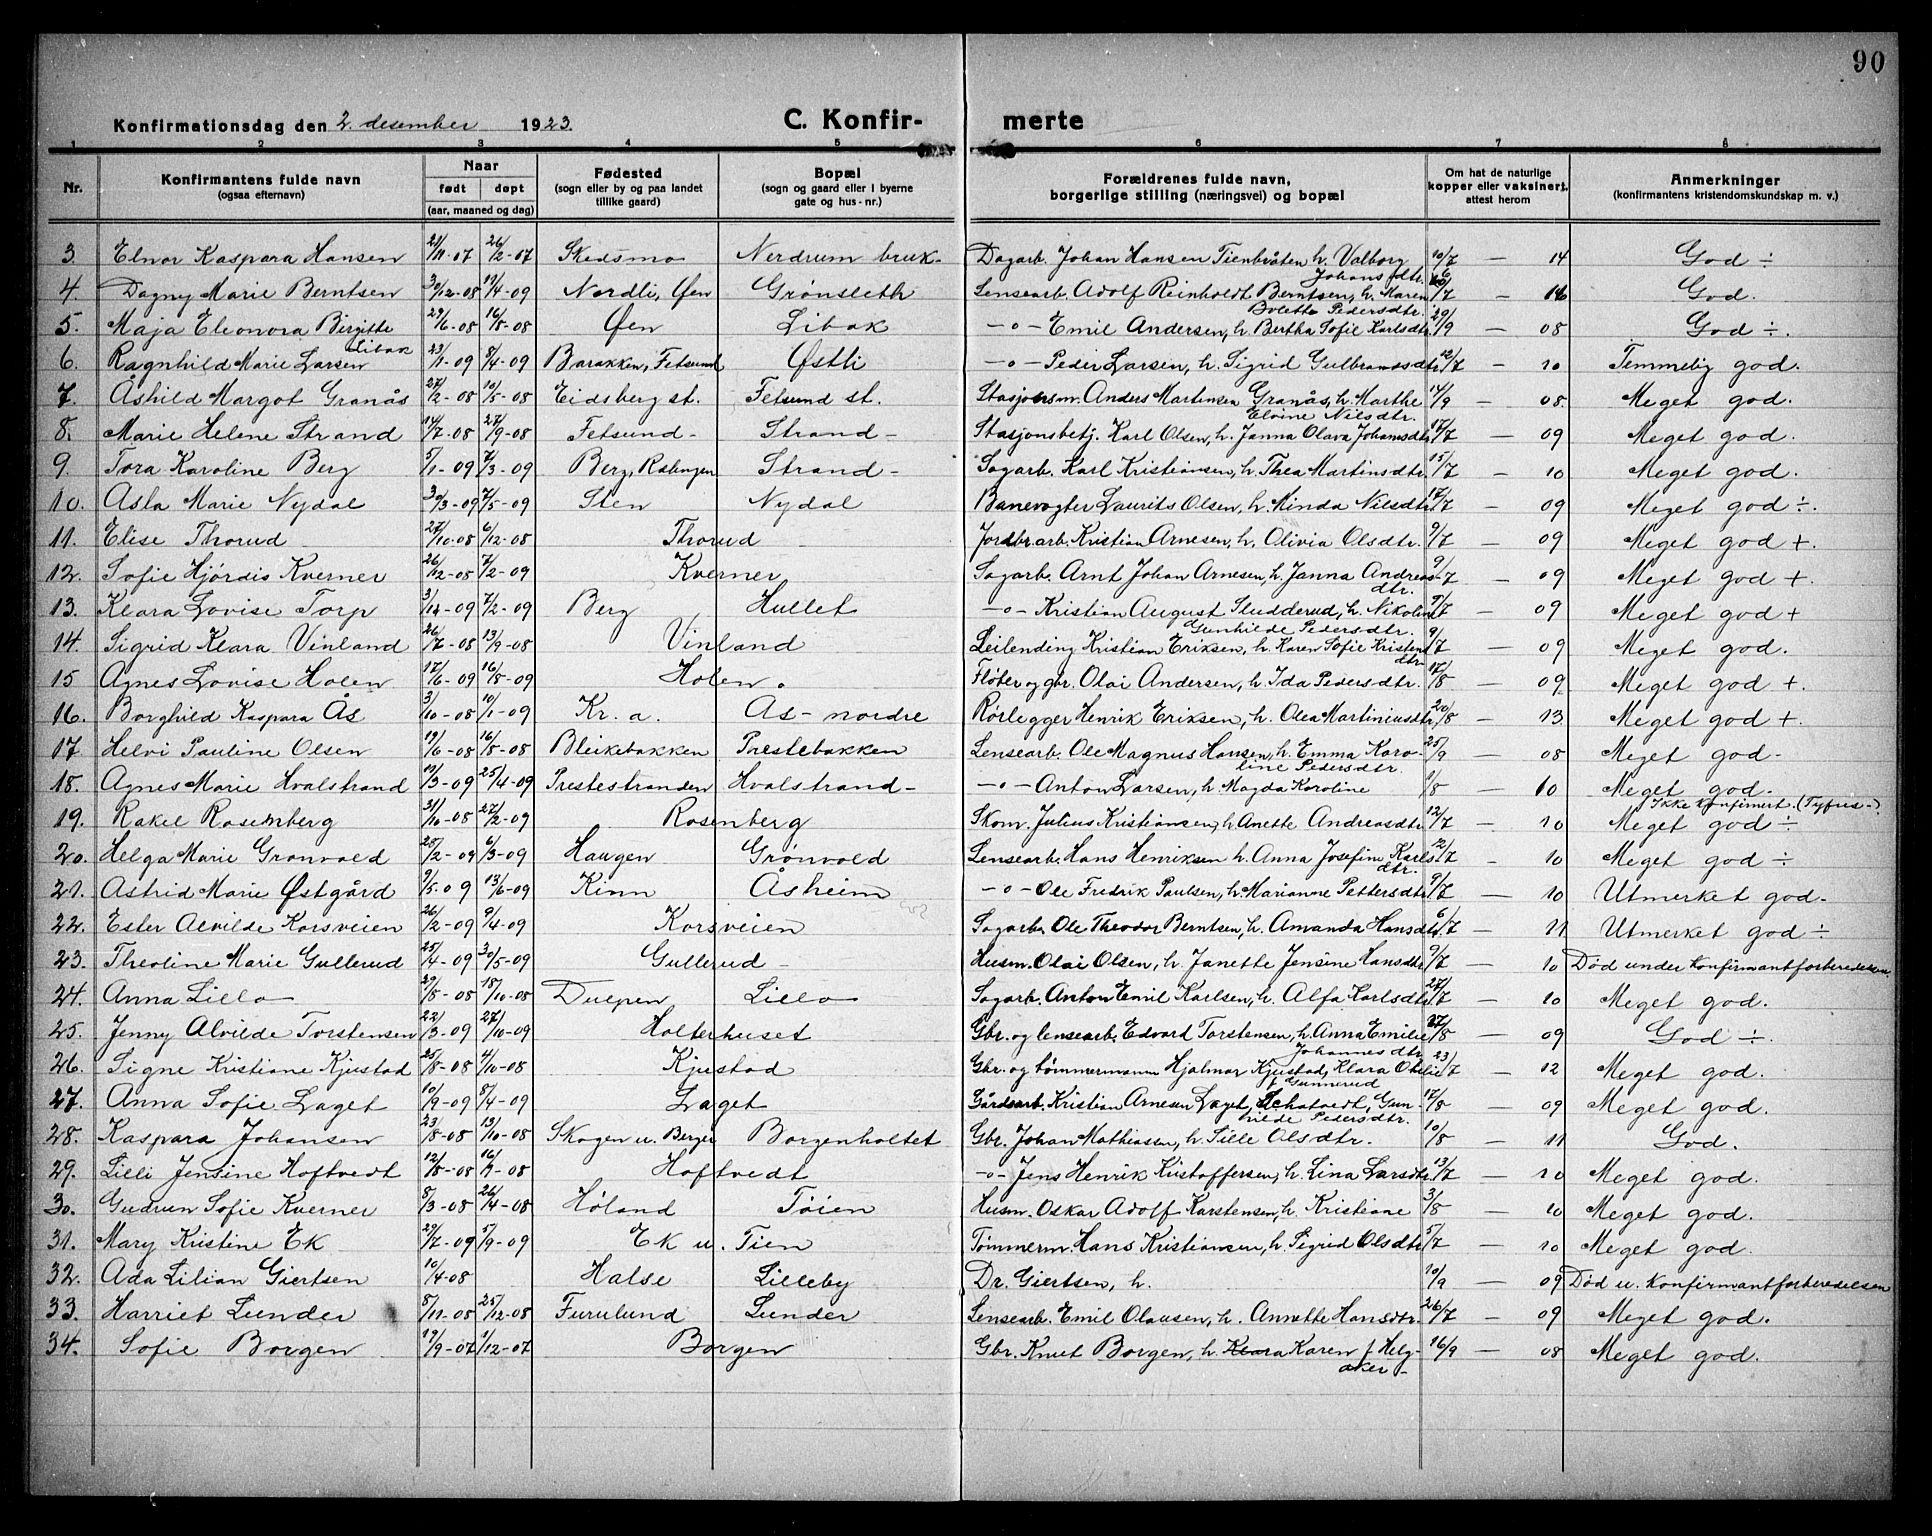 90
Konfirmationsdag den 2. desember 1923. C. Konfir- merte
1 2 3 4 5 6 7 8
Nr. Konfirmantens fulde navn (ogsaa efternavn) Naar født døpt (aar, maaned og dag) Fødested (sogn eller by og paa landet tillike gaard) Bopæl (sogn og gaard eller i byerne gate og hus-nr.) Forældrenes fulde navn, borgerlige stilling (næringsvei) og bopæl Om hat de naturlige kopper eller vaksinert, attest herom Anmerkninger (konfirmantens kristendomskundskap m. v.)
3. Elnor Kaspara Hansen 21/11-07 26/2-07 Skedsmo Nerdrum bruk- Dagarb. Johan Hansen Tienbråten h. Valborg Johansdtr. 10/7 — 14 God ÷
4. Dagny Marie Berntsen 30/12-08 12/4-09 Nordli, Øen Grønsleth Lensearb. Adolf Reinholdt Berntsen, h. Maren Bolette Pedersdtr. /7 — 16 God.
5. Maja Eleonora Birgitte Libak 29/6-08 16/8-08 Øen Libak —o— Emil Andersen, h. Bertha Sofie Karlsdtr. 29/9 — 08 God ÷.
6. Ragnhild Marie Larsen 23/1-09 8/4-09 Barakken, Fetsund Østli —o— Peder Larsen, h. Sigrid Gulbrandsdtr. 12/7 — 10 Temmelig god.
7. Åshild Margot Granås 27/2-08 10/5-08 Eidsberg st. Fetsund st. Stasjonsm. Anders Martinsen Granås, h. Marthe Elvine Nilsdtr. 14/9 — 08. Meget god.
8. Marie Helene Strand 14/7-08 27/9-08 Fetsund- Strand- Stasjonsbetj. Karl Olsen, h. Janna Olava Johansdtr. 17/7 — 09 Meget god.
9. Tora Karoline Berg 5/1-09 7/3-09 Berg, Rælingen Strand- Sagarb. Karl Kristiansen, h. Thea Martinsdtr. 15/7 — 10 Meget god.
10. Åsla Marie Nydal 30/3-09 7/5-09 Sten Nydal Banevogter Laurits Olsen, h. Minda Nilsdtr. 17/7 — 09 Meget god ÷.
11. Elise Thorud 27/10-08 6/12-08 Thorud Jordbr.arb. Kristian Arnesen, h. Olivia Olsdtr. 9/7 — 09 Meget god +.
12. Sofie Hjørdis Kverner 26/12-08 7/2-09 Kverner Sagarb. Arnt Johan Arnesen, h. Janna Andreas dtr. 9/7 — 09 Meget god +.
13. Klara Lovise Torp 3/ -09 7/2-09 Berg Hullet —o— Kristian August Studderud, h. Nikoline Gunhilde Pedersdtr. 9/7 — 09 Meget god +
14. Sigrid Klara Vinland 26/7-08 13/9-08 Vinland Leilending Kristian Eriksen, h. Karen Sofie Kristens dtr. 9/7 — 09 Meget god.
15 Agnes Lovise Holen 17/6-09 16/8-09 Holen. Fløter og gbr. Olai Andersen, h. Ida Pedersdtr. 17/8 — 09 Meget god +.
16. Borghild Kaspara Ås 3/10-08 10/1-09 Kr.a. Ås-nordre Rørlegger Henrik Eriksen, h. Olea Martiniusdtr. 20/8 — 13 Meget god +.
17. Helvi Pauline Olsen 19/6-08 16/8-08 Bleikebakken Prestebakken Lensearb. Ole Magnus Hansen, h. Emma Karo- line Pedersdtr. 25/9 — 08 Meget god-
18. Agnes Marie Hvalstrand 13/3-09 25/4-09 Prestestranden Hvalstrand- —o— Anton Larsen, h. Magda Karoline 1/8 — 10 Meget god-
19. Rakel Rosenberg 31/10-08 27/2-09 Rosenberg Skom. Julius Kristiansen, h. Anette Andreasdtr. 12/7 — 10 Ikke konfirmert. (Tyfus-) Meget god ÷
20. Helga Marie Grønvold 25/2-09 6/3-09 Haugen Grønvold Lensearb. Hans Henriksen h. Anna Josefine Karls dtr. 12/7 — 10 Meget god ÷
21. Astrid Marie Østgård 9/5-09 13/6-09 Kinn Åsheim —o— Ole Fredrik Paulsen, h. Marianne Pettersdtr. 9/7 — 10 Utmerket god-
22. Ester Alvilde Korsveien 26/2-09 9/4-09 Korsveien Sagarb. Ole Theodor Berntsen, h. Amanda Hansdtr. 6/7 — 11 Utmerket god ÷
23. Theoline Marie Gullerud 25/4-09 30/5-09 Gullerud- Husm. Olai Olsen, h. Janette Jensine Hansdtr. 9/7 — 10 Død under konfirmantforberedelsen
24. Anna Lillo 29/8-08 18/10-08 Dulpen Lillo Sagarb. Anton Emil Karlsen, h. Alfa Karlsdtr. 27/7 — 10 Meget god.
25. Jenny Alvilde Torstensen 22/3-09 27/10-09 Holterhuset Gbr. og lensearb. Edvard Torstensen, h. Anna Emilie Johannesdtr. 27/8 — 09 God ÷.
26. Signe Kristiane Kjustad 25/8-08 4/10-08 Kjustad Gbr. og tømmermann Hjalmar Kjustad, Klara Otelie f Gunnerud 23/7 — 12 Meget god.
27. Anna Sofie Laget 10/9-09 8/4-09 Laget Gårdsarb. Kristian Arnesen Laget, Gun- hilde Pedersdtr. 17/8 — 09 Meget god.
28. Kaspara Johansen 23/8-08 13/10-08 Skogen u. Berger Borgenholtet Gbr. Johan Mathiassen, h. Lille Olsdtr. 10/8 — 11 God.
29. Lilli Jensine Hoftvedt 12/8-08 16/9-08 Hoftvedt —o— Jens Henrik Kristoffersen, h. Lina Larsdtr. 13/7 — 10 Meget god.
30. Gudrun Sofie Kverner 8/3-08 26/4-08 Høland Tøien Husm. Oskar Adolf Karstensen, h. Kristiane 3/8 — 10 Meget god.
31. Mary Kristine Ek 29/7-09 5/9-09 Ek u. Tien Tømmerm. Hans Kristiansen, h. Sigrid Olsdtr. 5/7 — 10 Meget god.
32. Ada Lilian Giertsen 10/4-08 Halse Lilleby Dr. Giertsen, h. 10/9 — 09 Død u. konfirmantforberedelsen
33. Harriet Lunder 8/11-08 25/12-08 Furulund Lunder Lensearb. Emil Olausen, h. Annette Hansdtr. 26/7 — 09 Meget god.
34. Sofie Borgen 19/9-07 1/12-07 Borgen Gbr. Knut Borgen, h. Klara Karen f Helg- aker- 16/9 — 08 Meget god.